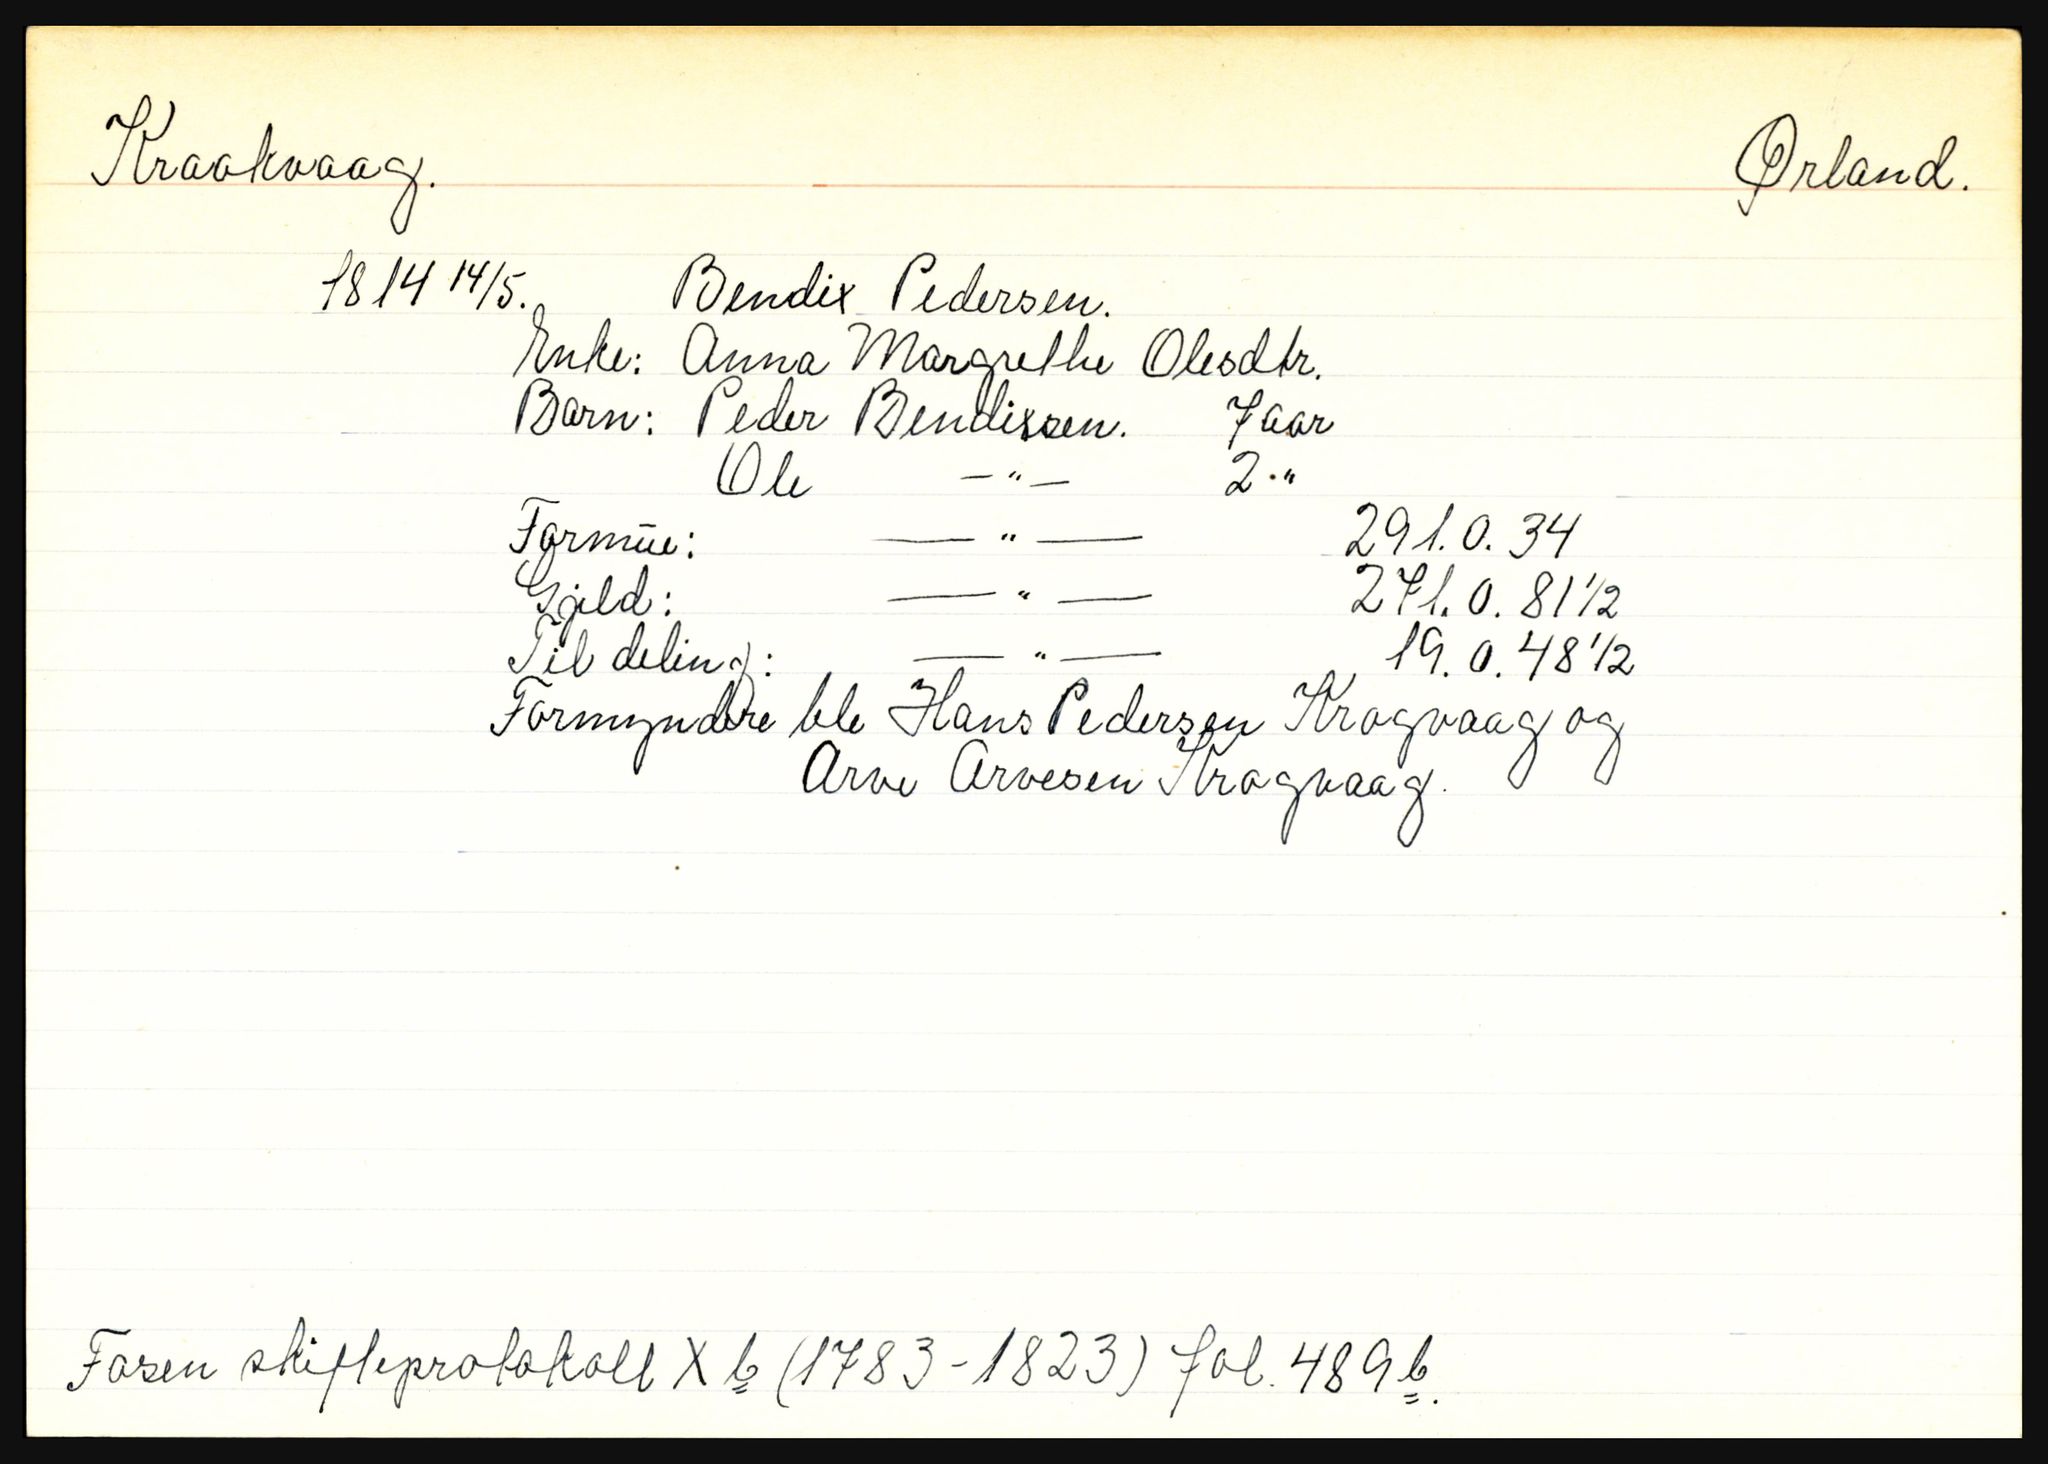 Kraakvaag. Ørland.
1814 14/5. Bendix Pedersen.
Enke: Anna Margrethe Olesdtr.
Barn: Peder Bendixsen. 7 aar
Ole —"— 2 "
Formue: —"— 291. 0. 34
Gjeld: —"— 271. 0. 81 1/2
Til deling: —"— 19. 0. 48 1/2
Formyndere ble Hans Pedersen Krogvaag og
Arve Arvesen Krogvaag.
Fosen skifteprotokoll X b (1783-1823) fol. 489 b.